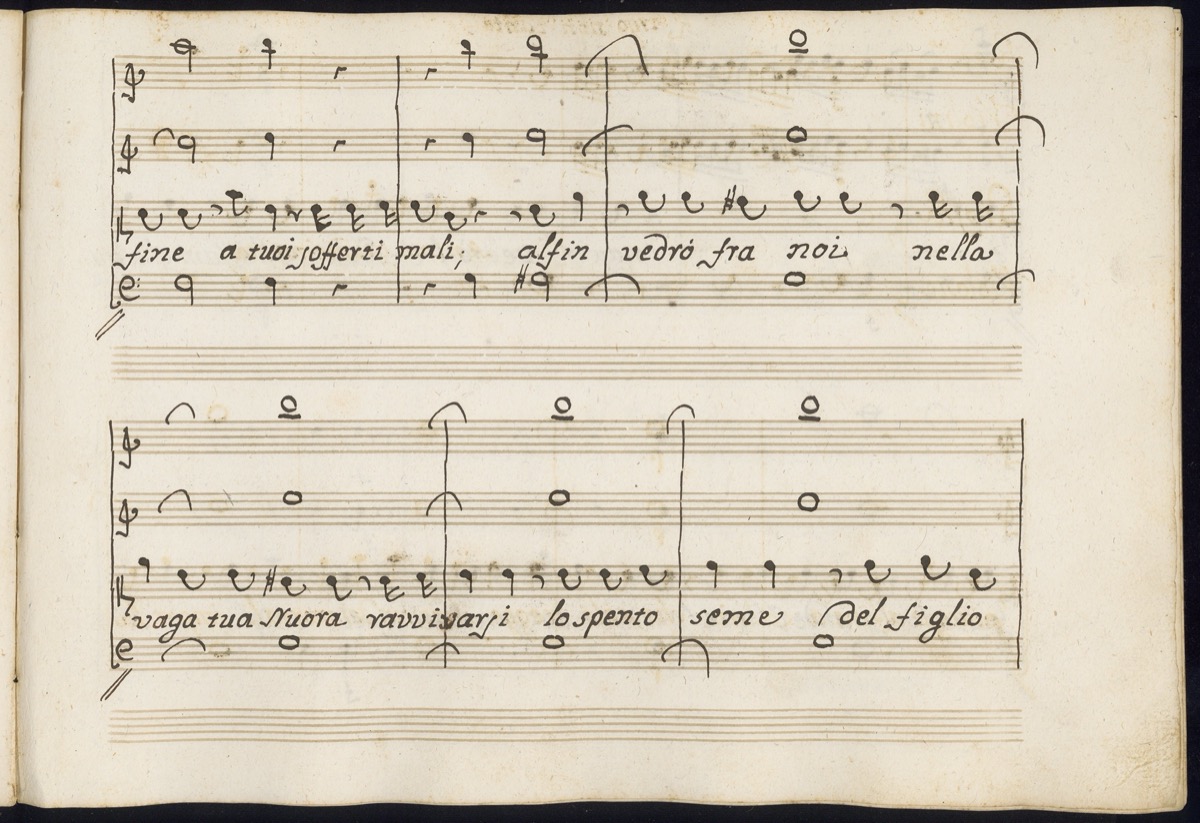 fine a tuoi sofferti mali; alfin vedrò fra noi nella
vaga tua Nuora ravvivarsi lo spento seme del figlio